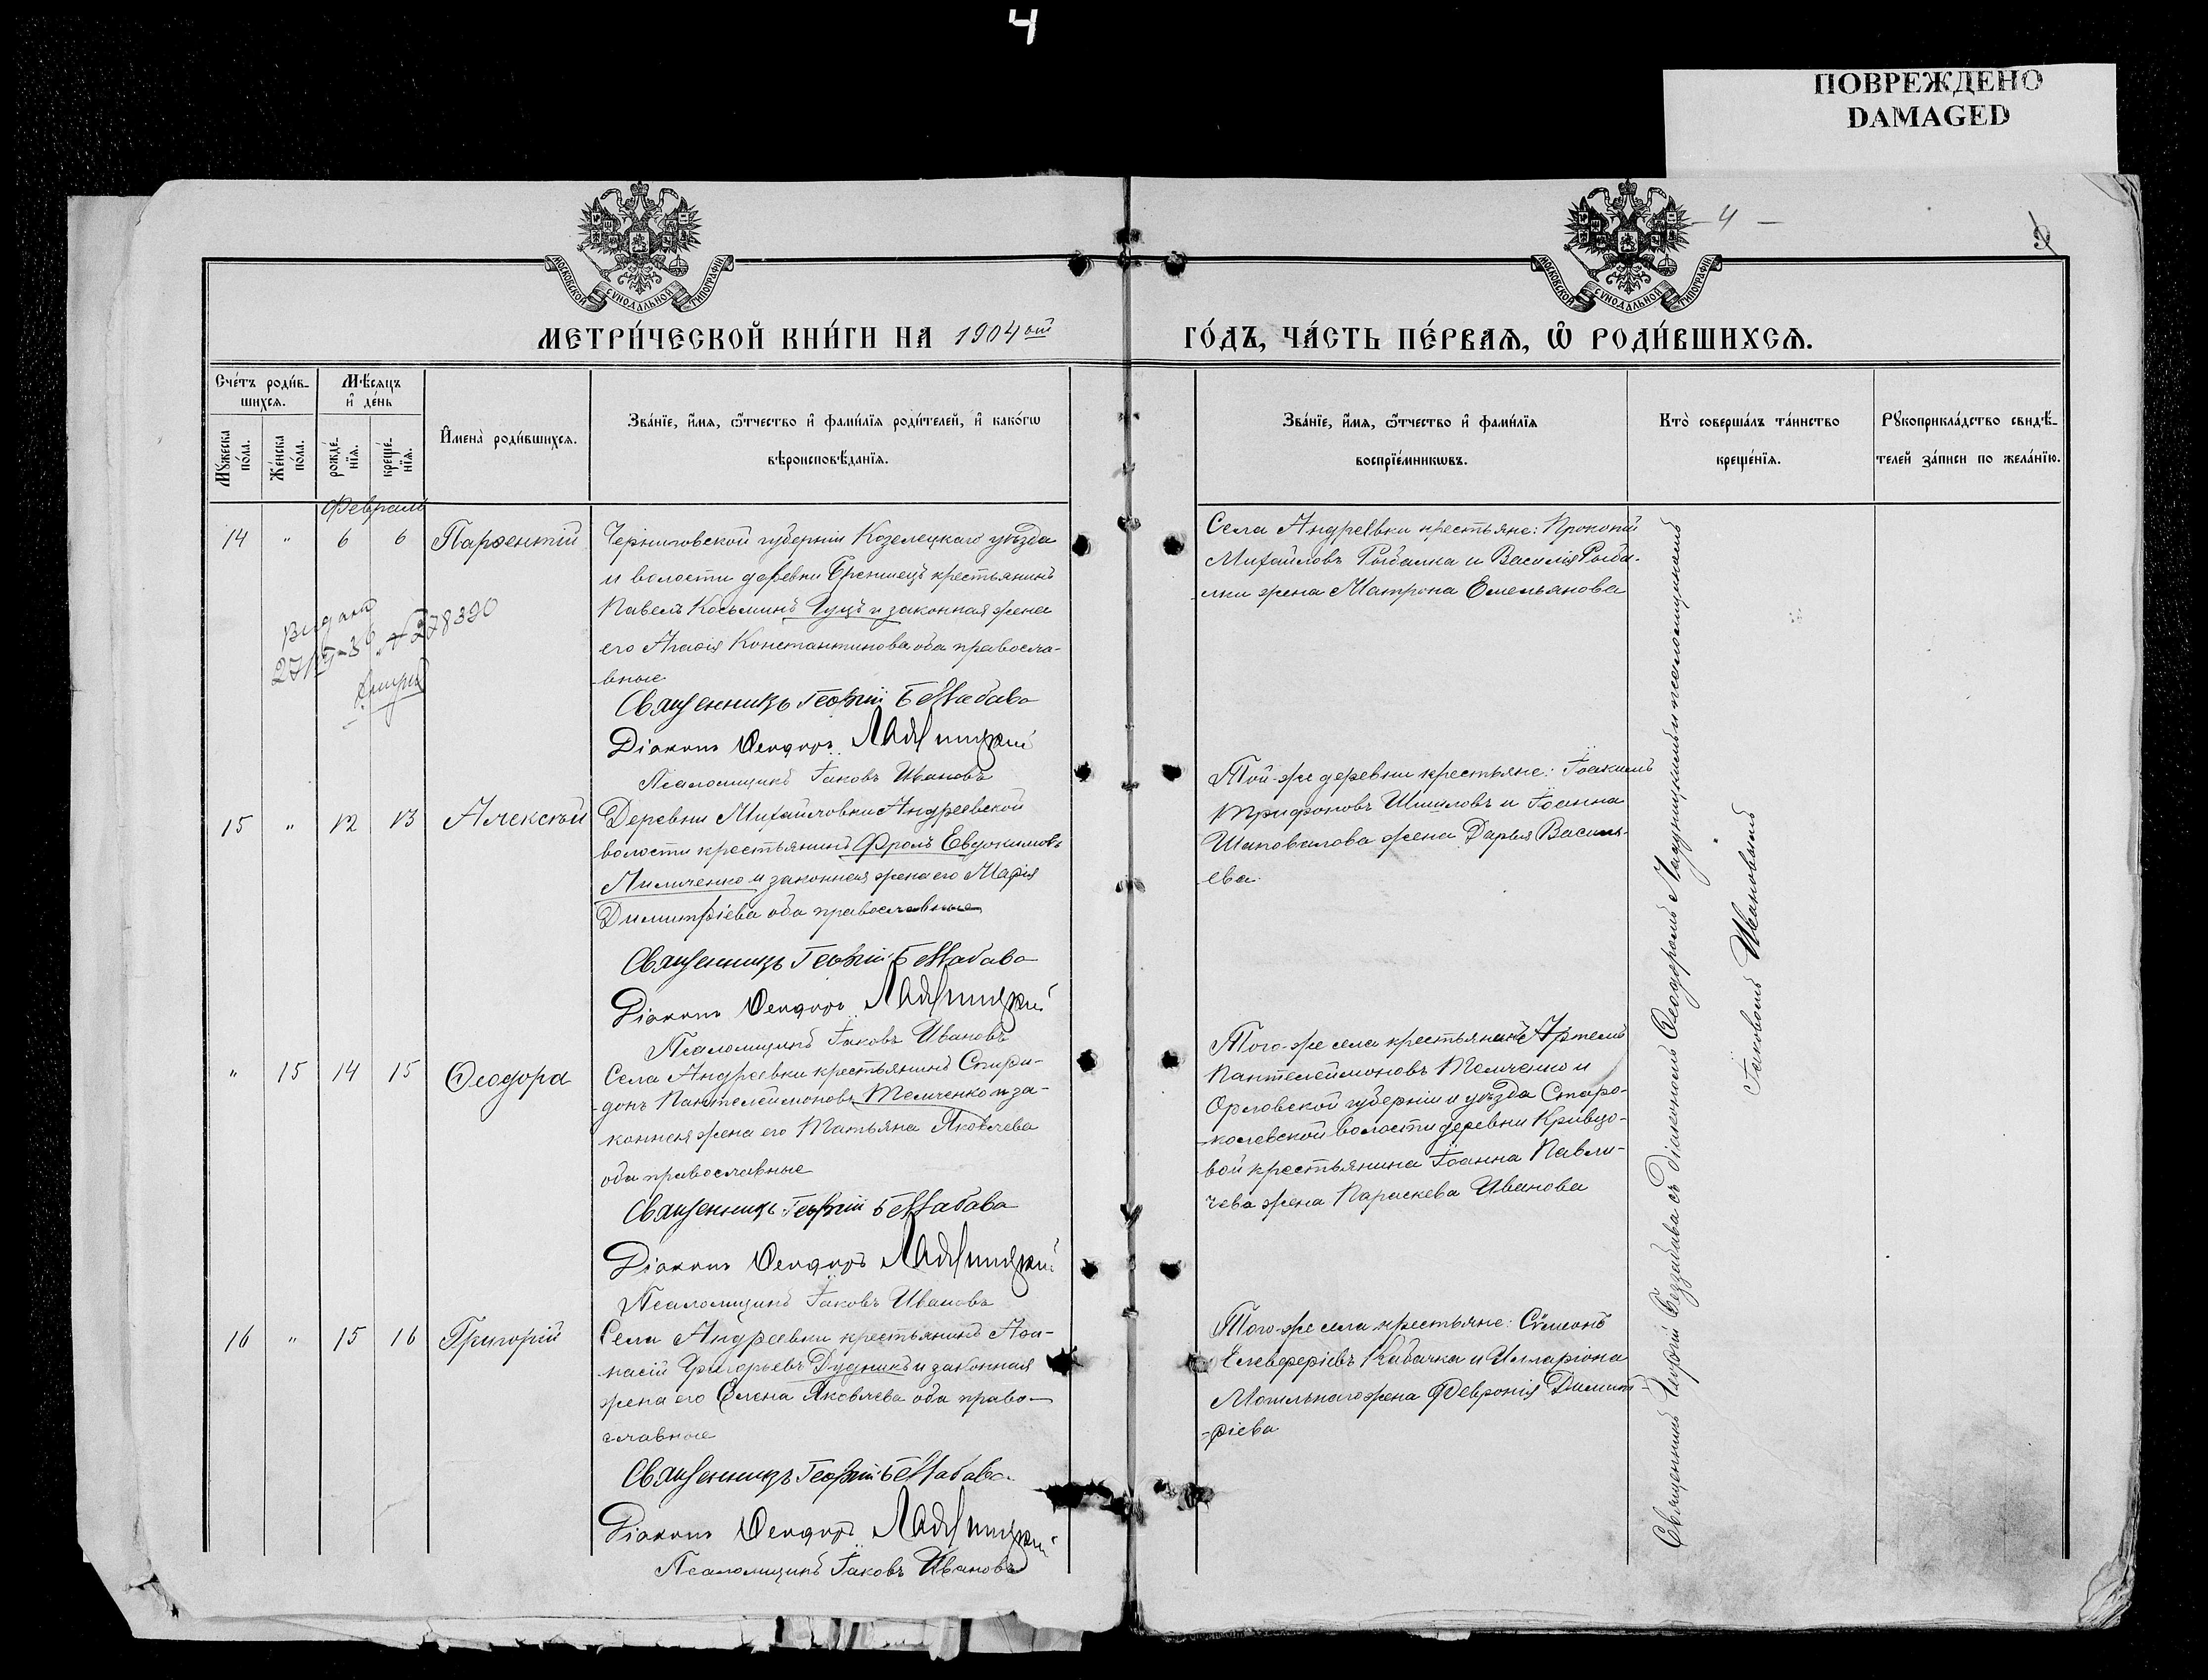 4
ПОВРЕЖДЕНО
DAMAGED
МОСКОВСКОЙ СѴНОДАЛЬНОЙ ТИПОГРАФІИ
МОСКОВСКОЙ СѴНОДАЛЬНОЙ ТИПОГРАФІИ
– 4 –
МЕТРИ́ЧЕСКОЙ КНИ́ГИ НА 1904ый
ГО́ДЪ, ЧА́СТЬ ПЕ́РВАѦ, Ѡ҆ РОДИ́ВШИХСѦ.
Сче́тъ роди́в-
шихсѧ.
Мꙋжеска по́ла.
Же́нска по́ла.
Мѣ́сѧцъ
и҆ де́нь
рожде́-
нїѧ.
креще́-
нїѧ.
И҆мена̀ роди́вшихсѧ.
Зва́нїе, и҆́мѧ, ѻ҆́тчество и҆ фами́лїѧ роди́телей, и҆ како́гѡ
вѣроисповѣ́данїѧ.
Зва́нїе, и҆́мѧ, ѻ҆́тчество и҆ фами́лїѧ
воспрїе́мникѡвъ.
Кто̀ соверша́лъ та́инство
креще́нїѧ.
Рꙋкоприкла́дство свидѣ́-
телей за́писи по жела́нїю.
Февраль
14 " 6 6 Парѳентій
Черниговской губерніи Козелецкаго уѣзда
и волости деревни крестьянинъ
Павелъ Косьминъ Гуцъ и законная жена
его Агаѳія Константинова оба правосла-
вные
№ 278390
Священникъ Георгій Беззабава
Діаконъ Ѳеодоръ Ладницкій
Псаломщикъ Іаковъ Ивановъ
Села Андреевки крестьяне: Прокопій
Михайловъ Рыбалка и Василія Рыба-
лки жена Матрона Емельянова
15 " 12 13 Алексѣй
Деревни Михайловки Андреевской
волости крестьянинъ Фролъ Евдокимовъ
и законная жена его Марія
Димитріева оба православные
Священникъ Георгій Беззабава
Діаконъ Ѳеодоръ Ладницкій
Псаломщикъ Іаковъ Ивановъ
Той-же деревни крестьяне: Іоакимъ
Трифоновъ Шишловъ и Іоанна
Шаповалова жена Дарья Василь-
ева
" 15 14 15 Ѳеодора
Села Андреевки крестьянинъ Спири-
донъ Пантелеймоновъ Темченко и за-
конная жена его Татьяна Яковлева
оба православные
Священникъ Георгій Беззабава
Діаконъ Ѳеодоръ Ладницкій
Псаломщикъ Іаковъ Ивановъ
Того-же села крестьянинъ Артемъ
Пантелеймоновъ Темченко и
Орловской губерніи и уѣзда Старо-
колевской волости деревни Кривцо-
вой крестьянина Іоанна Павли-
чева жена Параскева Иванова
16 " 15 16 Григорій
Села Андреевки крестьянинъ Аѳа-
насій Григорьевъ Дудникъ и законная
жена его Елена Яковлева оба право-
славные
Священникъ Георгій Беззабава
Діаконъ Ѳеодоръ Ладницкій
Псаломщикъ Іаковъ Ивановъ
Того-же села крестьяне: Сѵмеонъ
Елевферіевъ Кабачка и Илларіона
Могильнаго жена Февронія Димит-
ріева
Священникъ Георгій Беззабава съ діакономъ Ѳеодоромъ Ладницкимъ и псаломщикомъ
Іаковомъ Ивановымъ